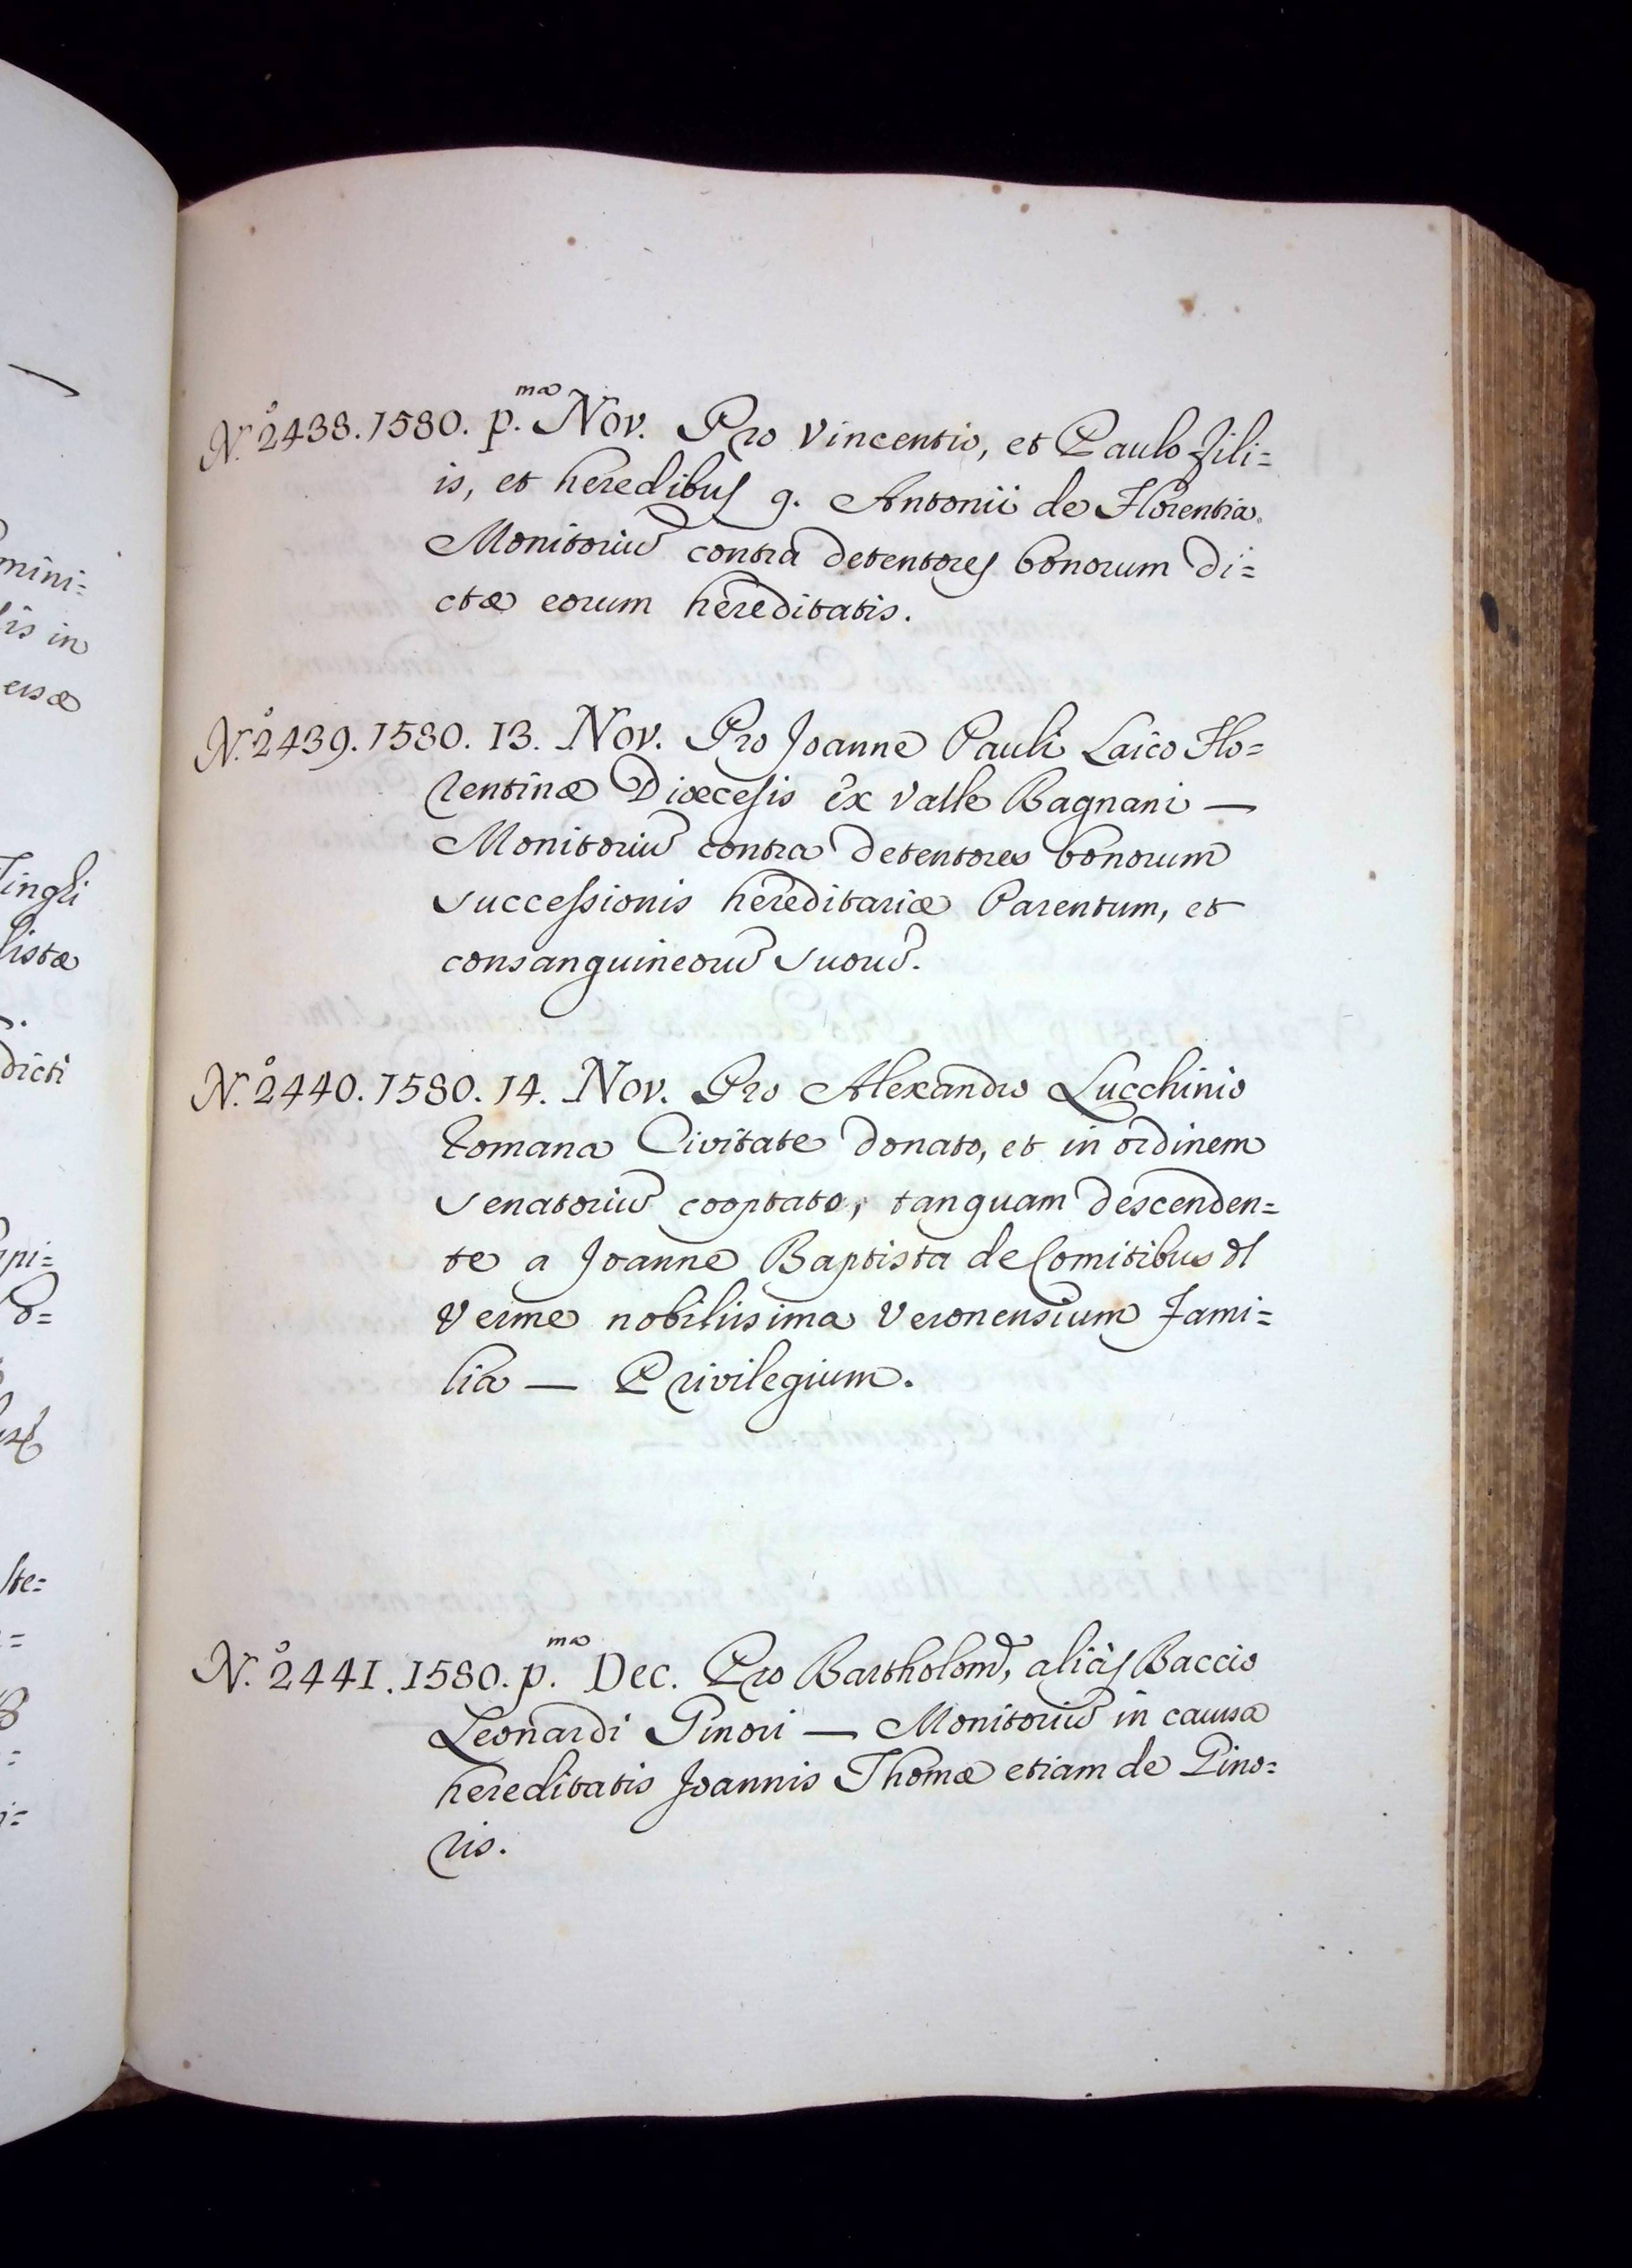 mini=
lis in
ersæ
Tingli
listæ
dicti
N.º 2438. 1580. p.ma Nov. Pro Vincentio, et Paulo Fili=
is, et heredibus q. Antonii de Florentia.
Monitoriũ contra detentores bonorum di=
ctæ eorum hereditatis.
N.º 2439. 1580. 13. Nov. Pro Joanne Pauli Laico Flo=
rentinæ Diœcesis ex Valle Bagnani —
Monitoriũ contra detentores bonorum
successionis hereditariæ Parentum, et
consanguineorũ suorũ.
N.º 2440. 1580. 14. Nov. Pro Alexandro Lucchinio
Romana Civitate donato, et in ordinem
Senatoriũ cooptato, tanquam descenden=
te a Joanne Baptista de Comitibus dl
Verme nobilissima Veronensium Fami=
lia — Privilegium.
N.º 2441. 1580. p.ma Dec. Pro Bartholom̃, aliàs Baccio
Leonardi Ginori — Monitoriũ in caussa
hereditatis Joannis Thomæ etiam de Gino=
ris.